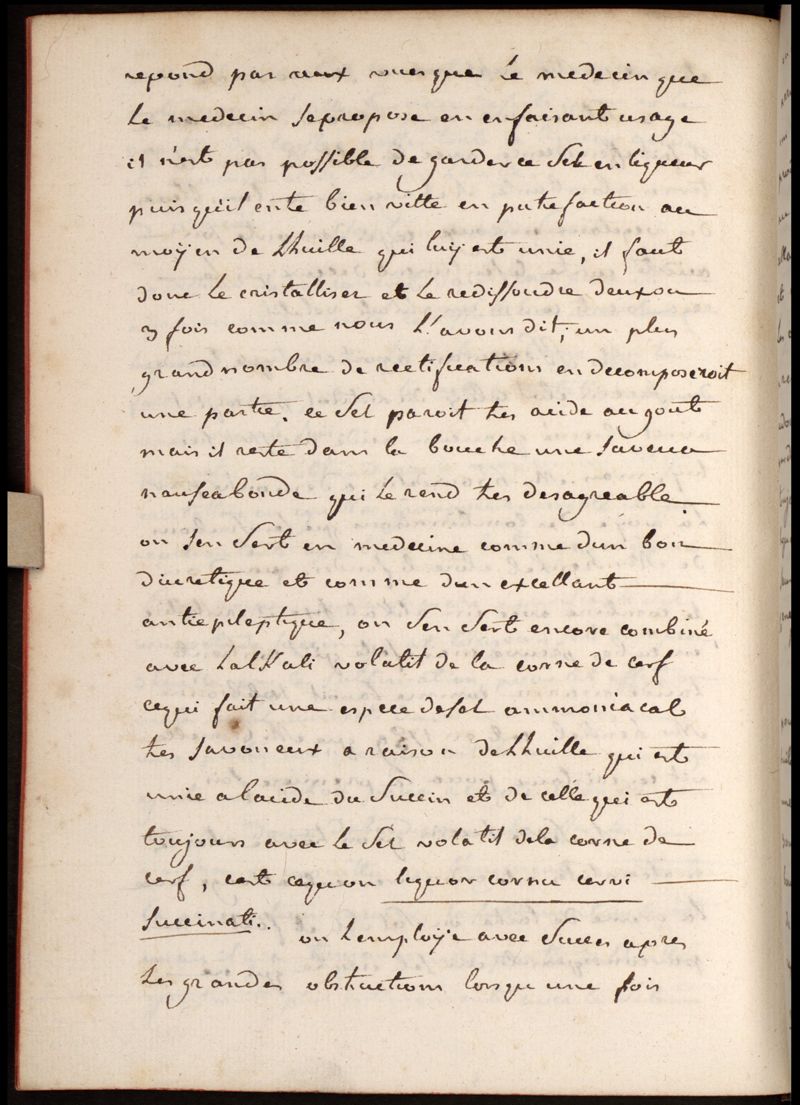 repond pas aux vues que le medecin que
le medecin se propose en en faisant usage
il n'est pas possible de garder ce Sel en liqueur
puis qu'il entre bien vitte en putrefaction au
moÿen de Lhuille qui luy est unie, il faut
donc le cristalliser et le redissoudre deux ou
3 fois comme nous L'avons dit, un plus
grand nombre de rectifications en decomposeroit
une partie. ce Sel paroit tres acide au gout
mais il reste dans la bouche une Saveur
nauseabonde qui le rend tres desagreable.
on Sen Sert en medecine comme dun bon
diuretique et comme dun excellant
antiepileptique, on Sen Sert encore combiné
avec Lalkali volatil de la corne de cerf
ce qui fait une espece de sel ammoniacal
tres Savoneux a raison de Lhuille qui est
unie a lacide du Succin et de celle qui est
toujours avec le Sel volatil de la corne de
cerf, c'est ce qu'on liquor cornu cervi
Succinati..
on Lemploÿe avec Succes apres
Les grandes obstructions lorsqu une fois